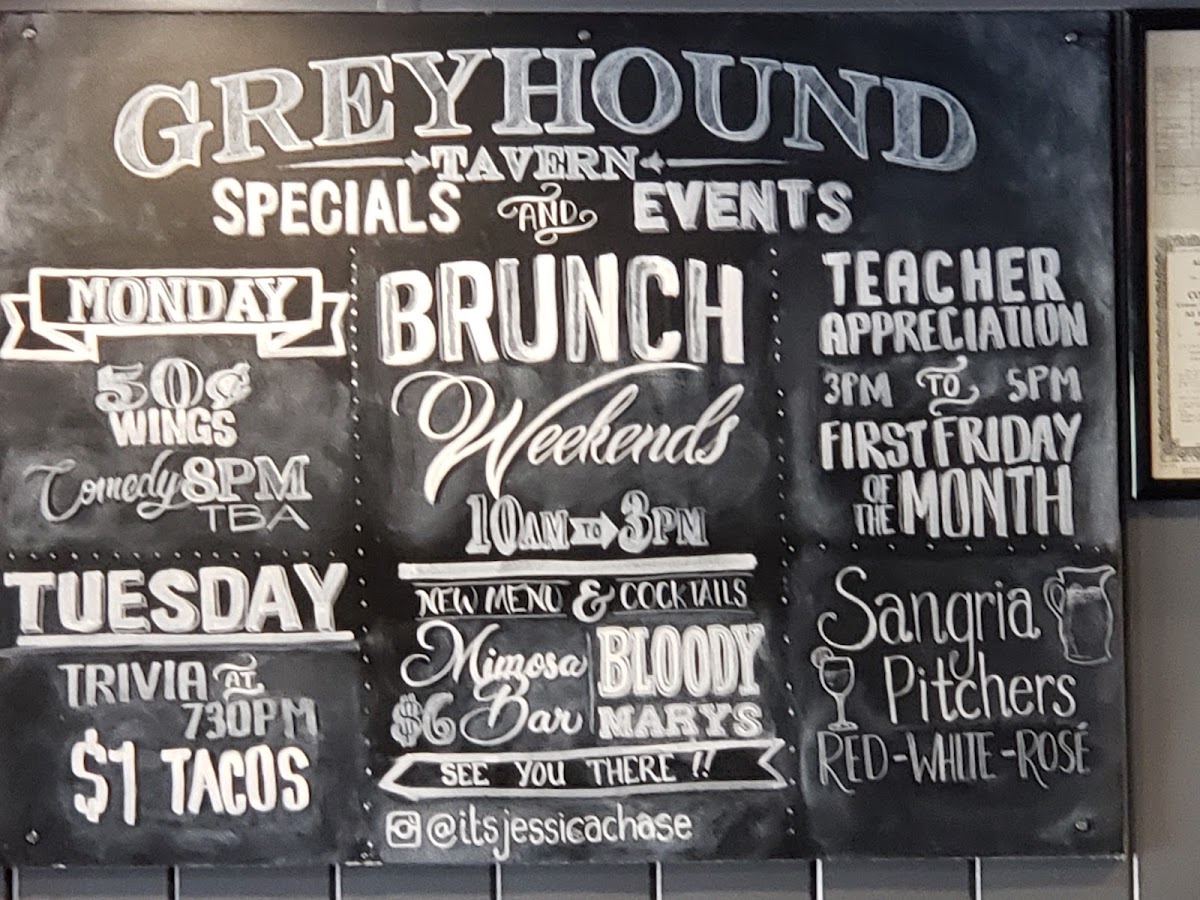 GREYHOUND
TAVERN
SPECIALS AND EVENTS
MONDAY
50¢
WINGS
Comedy 8PM
TBA
TUESDAY
TRIVIA AT
730PM
$1 TACOS
BRUNCH
Weekends
10AM TO 3PM
NEW MENU & COCKTAILS
Mimosa
$6 Bar
BLOODY
MARYS
SEE YOU THERE !!
@itsjessicachase
TEACHER
APPRECIATION
3PM TO 5PM
FIRST FRIDAY
OF THE MONTH
Sangria
Pitchers
RED-WHITE-ROSÉ